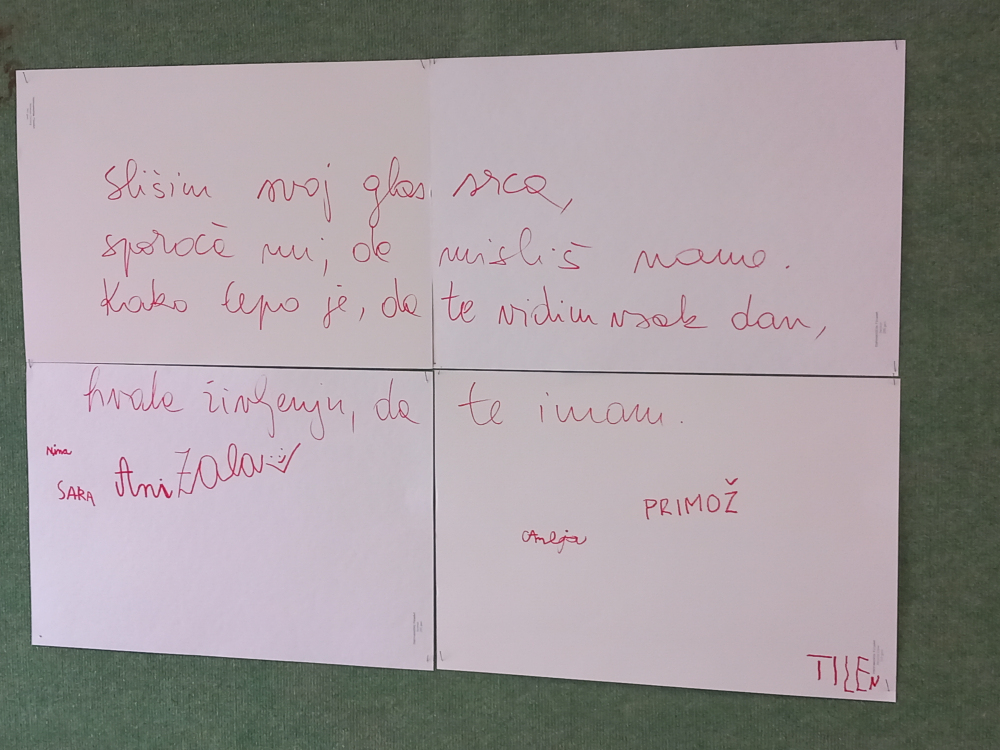 slišim svoj glas srca,
sporoča mi, da misliš name.
Kako lepo je, da te vidim vsak dan,
hvala življenju, da te imam.
Nina
SARA Ani Zala
PRIMOŽ
Anja
TILEN